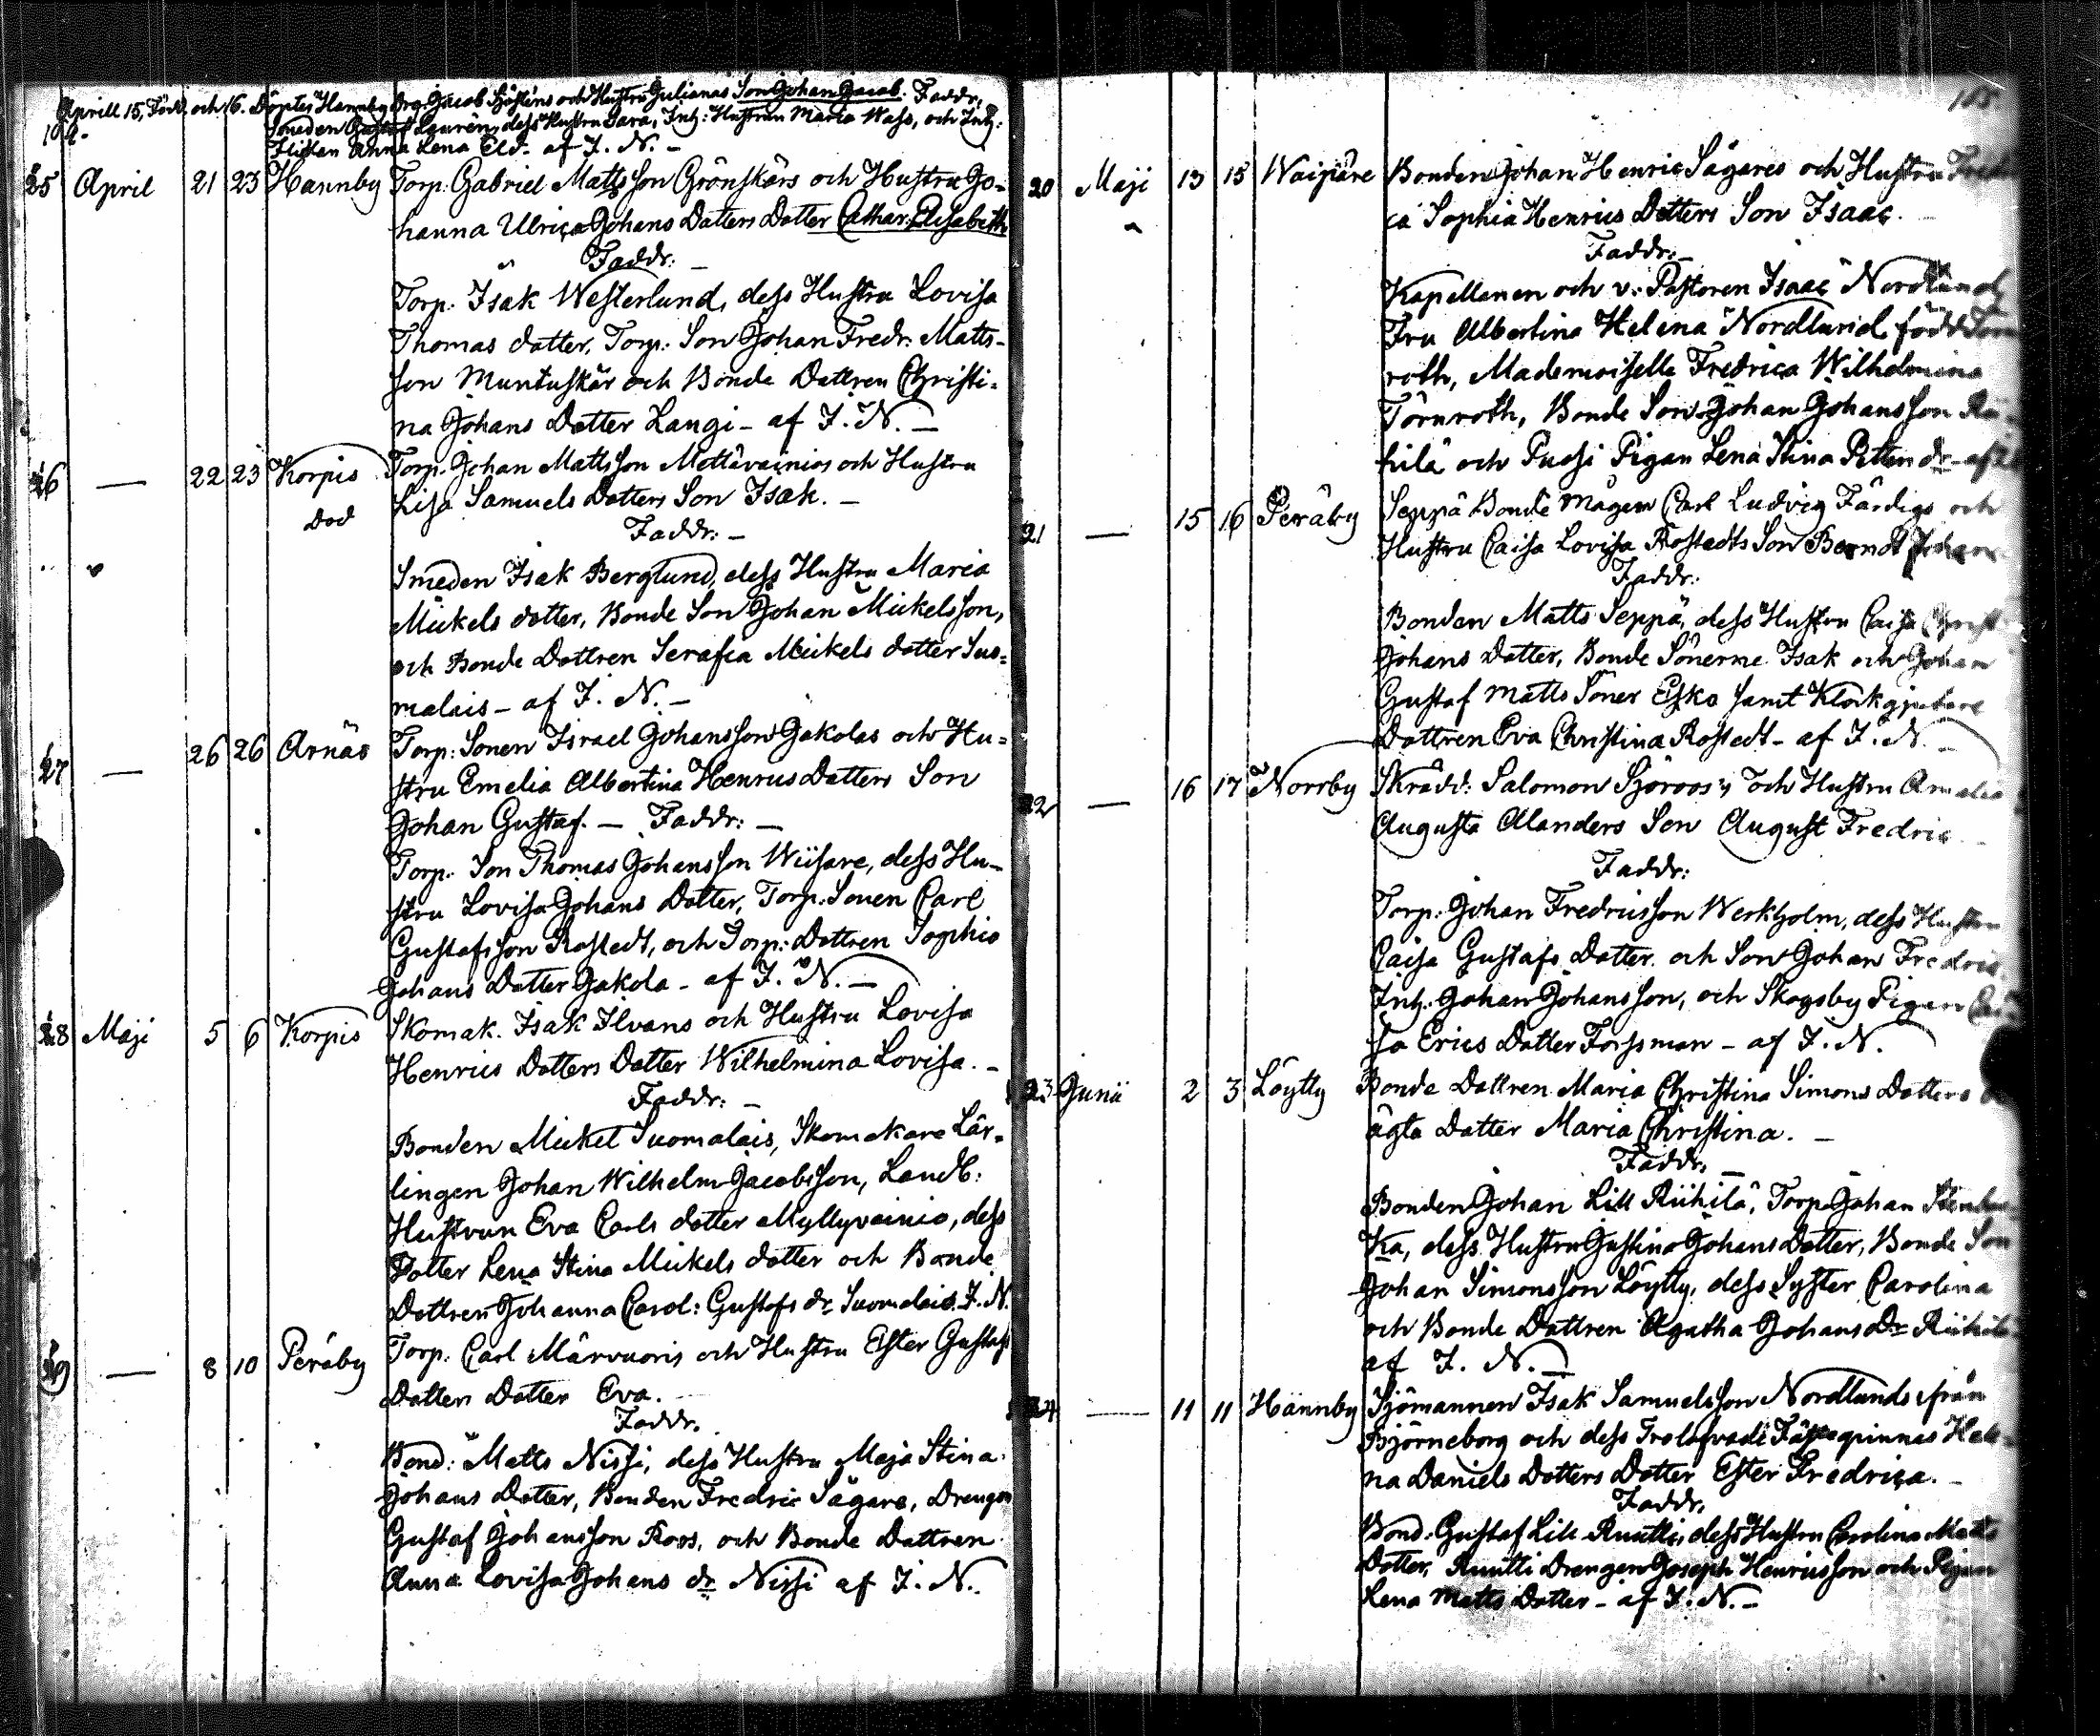 Aprill 15, Född, och 16. Döptes Hannby Drg. Jacob Sjösténs och Hustru Julianas Son Johan Jacob. Faddr.
104.
Smeden Gustaf Laurén, dess Hustru Sara, Inh: Hustrun Maria Wass, och Inh:
Flickan Anna Lena Eld. af I. N. –
25 April 21 23 Hannby Torp. Gabriel Mattsson Grönskärs och Hustru Jo-
hanna Ulrica Johans Datters Dotter Cathar. Elisabeth
Faddr: –
Torp. Isak Westerlund, dess Hustru Lovisa
Thomas dotter, Torp. Son Johan Fredr: Matts-
son Muntuskär och Bonde Dottren Christi-
na Johans Dotter Langi – af I. N. –
26 — 22 23 Korpis Torp. Johan Mattsson Mottävainios och Hustru
Död Lisa Samuels Dotters Son Isak. –
Faddr: –
Smeden Isak Berglund, dess Hustru Maria
Mickels dotter, Bonde Son Johan Mickelsson,
och Bonde Dottren Serafia Mickels dotter Suo-
malais – af I. N. –
27 — 26 26 Arnäs Torp: Sonen Israel Johansson Jakolas och Hu-
stru Emelia Albertina Henrics Dotters Son
Johan Gustaf. – Faddr: –
Torp. Son Thomas Johansson Wiisare, dess Hu-
stru Lovisa Johans Dotter, Torp. Sonen Carl
Gustafsson Rostedt, och Torp: Dottren Sophia
Johans Dotter Jakola – af I. N. –
28 Maji 5 6 Korpis Skomak. Isak Ilvans och Hustru Lovisa
Henrics Dotters Dotter Wilhelmina Lovisa. –
Faddr: –
Bonden Mickel Suomalais, Skomakare Lär-
lingen Johan Wilhelm Jacobsson, Landb:
Hustrun Eva Carls dotter Myllyvainio, dess
Dotter Lena Stina Mickels dotter och Bonde
Dottren Johanna Carol: Gustafs dr Suomalais. I. N.
19 — 8 10 Peräby Torp. Carl Märvuoris och Hustru Ester Gustafs
Dotters Dotter Eva.
Faddr.
Bond: Matts Nissi, dess Hustru Maja Stina
Johans Dotter, Bonden Fredric Sägare, Drengen
Gustaf Johansson Roos, och Bonde Dottren
Anna Lovisa Johans dr Nissi af I. N.
105
20 Maji 13 15 Waipäre Bonden Johan Henric Sägares och Hustru
ca Sophia Henrics Dotters Son Isaac. –
Faddr: –
Kapellanen och v: Pastoren Isaac Nordlund
Fru Albertina Helena Nordlund, född Törn
roth, Mademoiselle Fredrica Wilhelmina
Törnroth, Bonde Son Johan Johansson Rii
hilä och Pussi Pigan Lena Stina Petters dr – af
21 — 15 16 Peräby Seppä Bonde Mågen Carl Ludvig Färdigs och
Hustru Caisa Lovisa Rostedts Son Berndt Johan
Faddr:
Bonden Matts Seppä, dess Hustru Caisa Christ
Johans Dotter, Bonde Sönerne Isak och Johan
Gustaf Matts Söner Esko samt Klockgjutare
Dottren Eva Christina Rostedt – af I. N. –
22 — 16 17 Norrby Skrädd: Salomon Sjöroos's och Hustru Amalia
Augusta Alanders Son August Fredric
Faddr:
Torp. Johan Fredricsson Werkholm, dess Hustru
Caisa Gustafs Dotter och Son Johan Fredric
Inh: Johan Johansson, och Skogsby Pigan Cai
sa Erics Dotter Forssman – af I. N.
23 Junii 2 3 Löytty Bonde Dottren Maria Christina Simons Dotters
ägta Dotter Maria Christina. –
Faddr. –
Bonden Johan Lill Riihilä, Torp. Johan
ka, dess Hustru Justina Johans Dotter, Bonde Son
Johan Simonsson Löytty, dess Syster Carolina
och Bonde Dottren Agatha Johans Dr Riihilä
af I. N. –
24 — 11 11 Hannby Sjömannen Isak Samuelsson Nordlunds ifrån
Björneborg och dess Trolofvade Fästeqvinnas Hele
na Daniels Dotters Dotter Ester Fredrica. –
Faddr.
Bond: Gustaf Lill Ruutti, dess Hustru Carolina Matts
Dotter, Ruutti Drengen Joseph Henricsson och Pigan
Lena Matts Dotter – af I. N. –